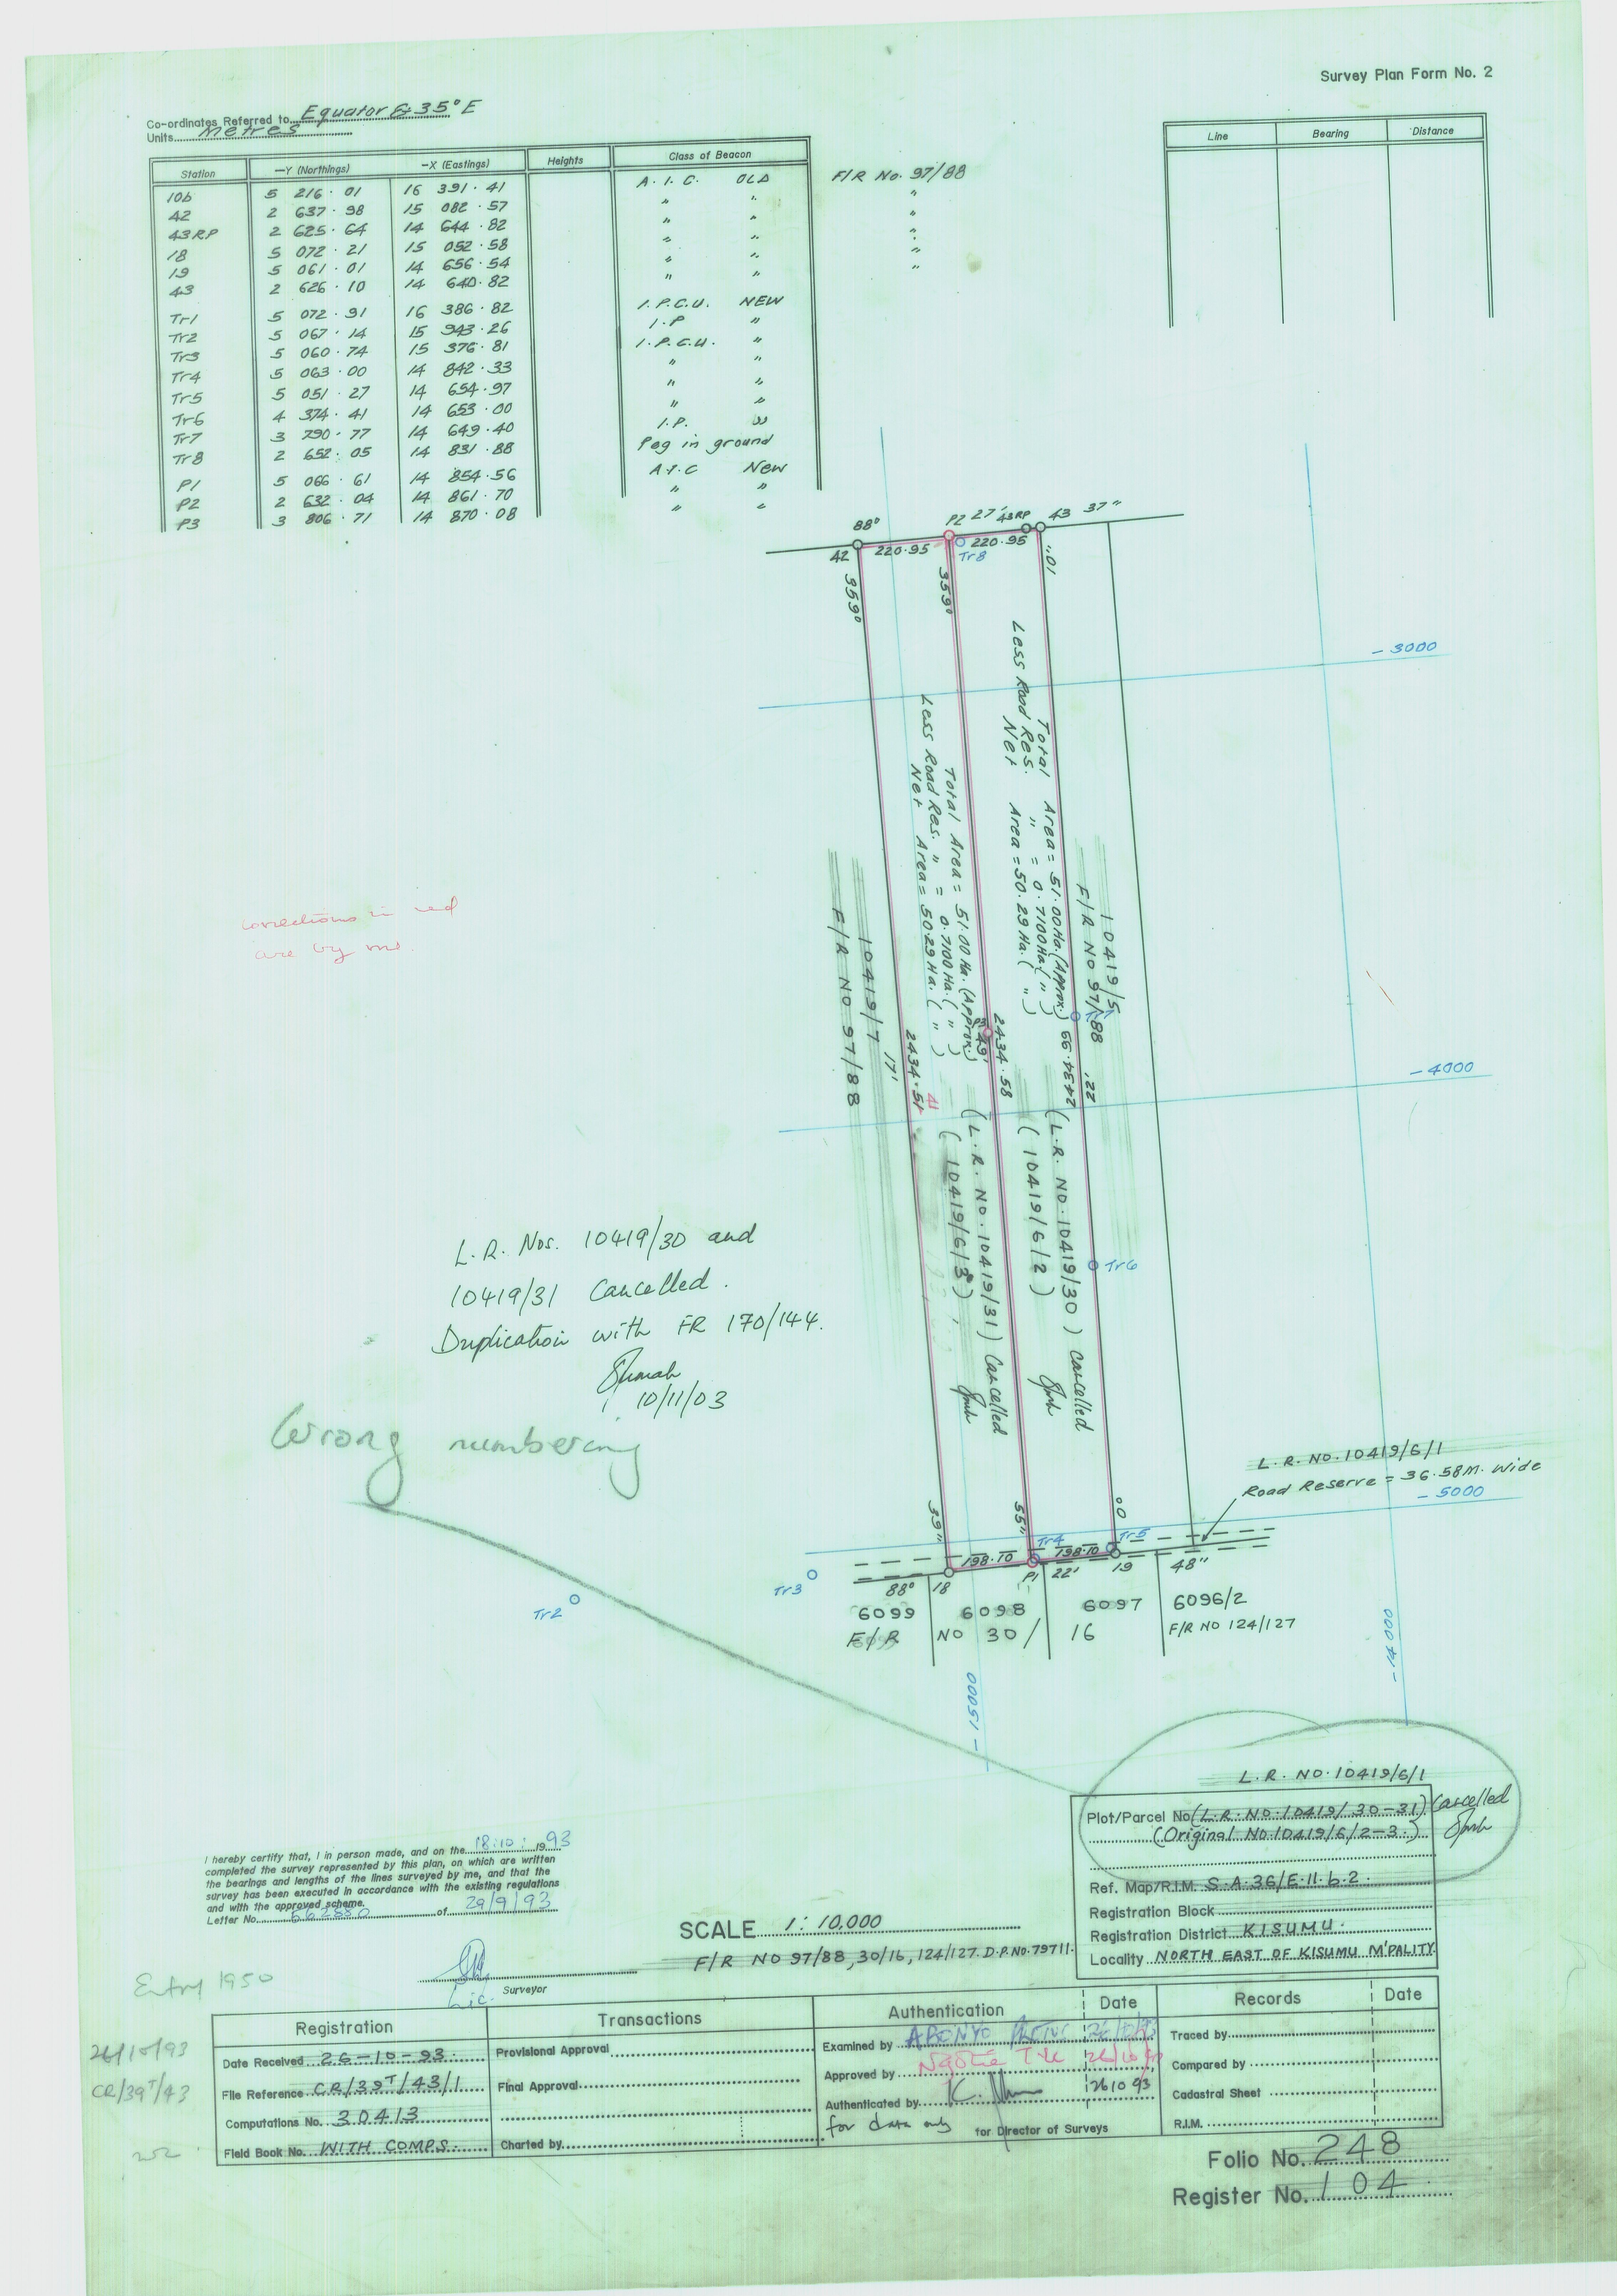 Survey Plan Form No. 2
Co-ordinates Referred to Equator & 35° E
Units Metres
Station —Y (Northings) —X (Eastings) Heights Class of Beacon
10b 5 216.01 16 391.41 A.I.C. OLD F/R No. 97/88
42 2 637.98 15 082.57 " " "
43RP 2 625.64 14 644.82 " " "
18 5 072.21 15 052.58 " " "
19 5 061.01 14 656.54 " " "
43 2 626.10 14 640.82 " " "
Tr1 5 072.91 16 386.82 I.P.C.U. NEW
Tr2 5 067.14 15 943.26 I.P "
Tr3 5 060.74 15 376.81 I.P.C.U. "
Tr4 5 063.00 14 842.33 " "
Tr5 5 051.27 14 654.97 " "
Tr6 4 374.41 14 653.00 " "
Tr7 3 790.77 14 649.40 I.P. "
Tr8 2 652.05 14 831.88 Peg in ground
P1 5 066.61 14 854.56 A.I.C New
P2 2 632.04 14 861.70 " "
P3 3 806.71 14 870.08 " "
Line Bearing Distance
88° P2 27' 43RP 43 37"
42 220.95 Tr8 220.95
359° 359° 01"
- 3000
Total Area = 51.00Ha. (Approx.)
Less Road Res. " = 0.7100Ha. ( " )
Net Area = 50.29 Ha. ( " )
Total Area = 51.00 Ha. (Approx.)
Less Road Res. " = 0.7100 Ha. ( " )
Net Area = 50.29 Ha. ( " )
10419/5
F/R NO 97/88
10419/7
F/R NO 97/88
corrections in red
are by me.
17'
2434.51
41
P3
49'
2434.58
Tr7
2434.99
22'
- 4000
(L.R. NO.10419/31) Cancelled
(10419/6/3)
(L.R. NO.10419/30) cancelled
(10419/6/2)
Tr6
L.R. Nos. 10419/30 and
10419/31 Cancelled.
Duplication with FR 170/144.
10/11/03
Wrong numbering
L.R. NO.10419/6/1
Road Reserve = 36.58M. Wide
- 5000
39" 55" 00
Tr4 Tr5
198.10 198.10
Tr3
Tr2
88° 18 P1 22' 19 48"
6099 6098 6097 6096/2
F/R NO 30/ 16 F/R NO 124/127
- 15000
- 14000
L.R. NO.10419/6/1
Plot/Parcel No (L.R. NO.10419/30-31) Cancelled
(Original No.10419/6/2-3.)
Ref. Map/R.I.M. S.A.36/E.11.b.2.
Registration Block
Registration District KISUMU.
Locality NORTH EAST OF KISUMU M'PALITY.
I hereby certify that, I in person made, and on the 18.10. 1993
completed the survey represented by this plan, on which are written
the bearings and lengths of the lines surveyed by me, and that the
survey has been executed in accordance with the existing regulations
and with the approved scheme.
Letter No. of 29/9/93
Lic. Surveyor
SCALE 1:10,000
F/R NO 97/88, 30/16, 124/127. D.P.NO.79711.
Entry 1950
26/10/93
CR/39T/43
252
Registration
Date Received 26-10-93.
File Reference CR/39T/43/1
Computations No. 30413
Field Book No. WITH COMPS.
Transactions
Provisional Approval
Final Approval
Charted by
Authentication Date
Examined by
Approved by
Authenticated by 26 10 93
for data only for Director of Surveys
Records Date
Traced by
Compared by
Cadastral Sheet
R.I.M.
Folio No. 248
Register No. 104